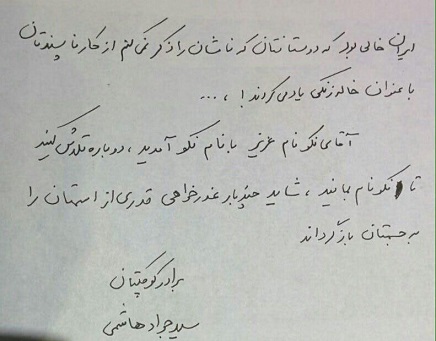 ایران خالی بود که دوستانتان که نامشان را ذکر نمی‌کنم از کار ناپسندتان
با عنوان خاله‌زنکی یاد می‌کردند! ، ...
آقای نکونام عزیز با نام نکو آمدید ، دوباره تلاش کنید
تا نکونام بمانید ، شاید چندبار عذرخواهی قدری از اسمتان را
به جسمتان بازگرداند
برادر کوچکتان
سید جواد هاشمی